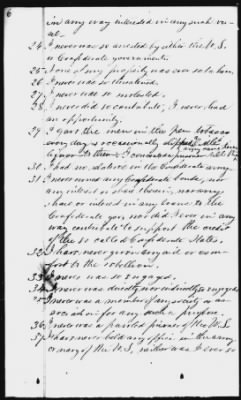 6
in any way interested in any such vessel.
24. I never was so arrested by either the U.S.
or Confederate governments.
25. None of my property was ever so taken.
26. I never was so threatened.
27. I never was so molested.
28. I never did so contribute, I never had
an opportunity.
29. I gave the men in the pen tobacco
every day & occasionally
liquor to them
30. I had no relatives in the Confederate army.
31. I never owned any Confederate bonds, nor
any interest or share therein, nor any
share or interest in any loans to the
Confederate gov. nor did I ever in any
way contribute to support the credit
of the so called Confederate States.
32. I have never given any aid or com-
fort to the rebellion.
33. I never was so engaged.
34. I never was directly nor indirectly so engaged
35. I never was a member of any society or as-
sociation for any such a purpose.
36. I never was a paroled prisoner of the U.S.
37. I have never held any office in the army
or navy of the U.S, neither was I ever so